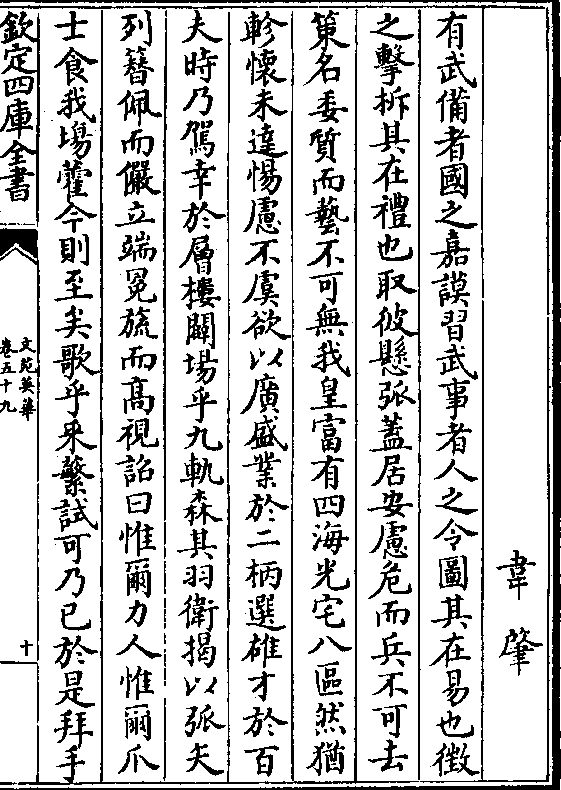 韋肇
有武備者國之嘉謨習武事者人之令圖其在易也徵
之擊柝其在禮也取彼懸弧蓋居安慮危而兵不可去
策名委質而藝不可無我皇富有四海光宅八區然猶
軫懷未達惕慮不虞欲以廣盛業於二柄選雄才於百
夫時乃駕幸於層樓闢場乎九軌森其羽衛揭以弧矢
列簪佩而儼立端冕旒而髙視詔曰惟爾力人惟爾爪
士食我場藿今則至矣歌乎采蘩試可乃已於是拜手
欽定四庫全書
文苑英華
卷五十九
十